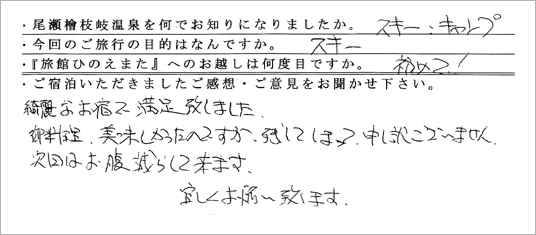 ・尾瀬檜枝岐温泉を何でお知りになりましたか。 スキー・キャンプ
・今回のご旅行の目的はなんですか。 スキー
・『旅館ひのえまた』へのお越しは何度目ですか。 初めて!
・ご宿泊いただきましたご感想・ご意見をお聞かせ下さい。
綺麗なお宿で満足致しました。
御料理、美味しかったのですが、残してしまって、申し訳ございません。
次回はお腹減らして来ます。
宜しくお願い致します。